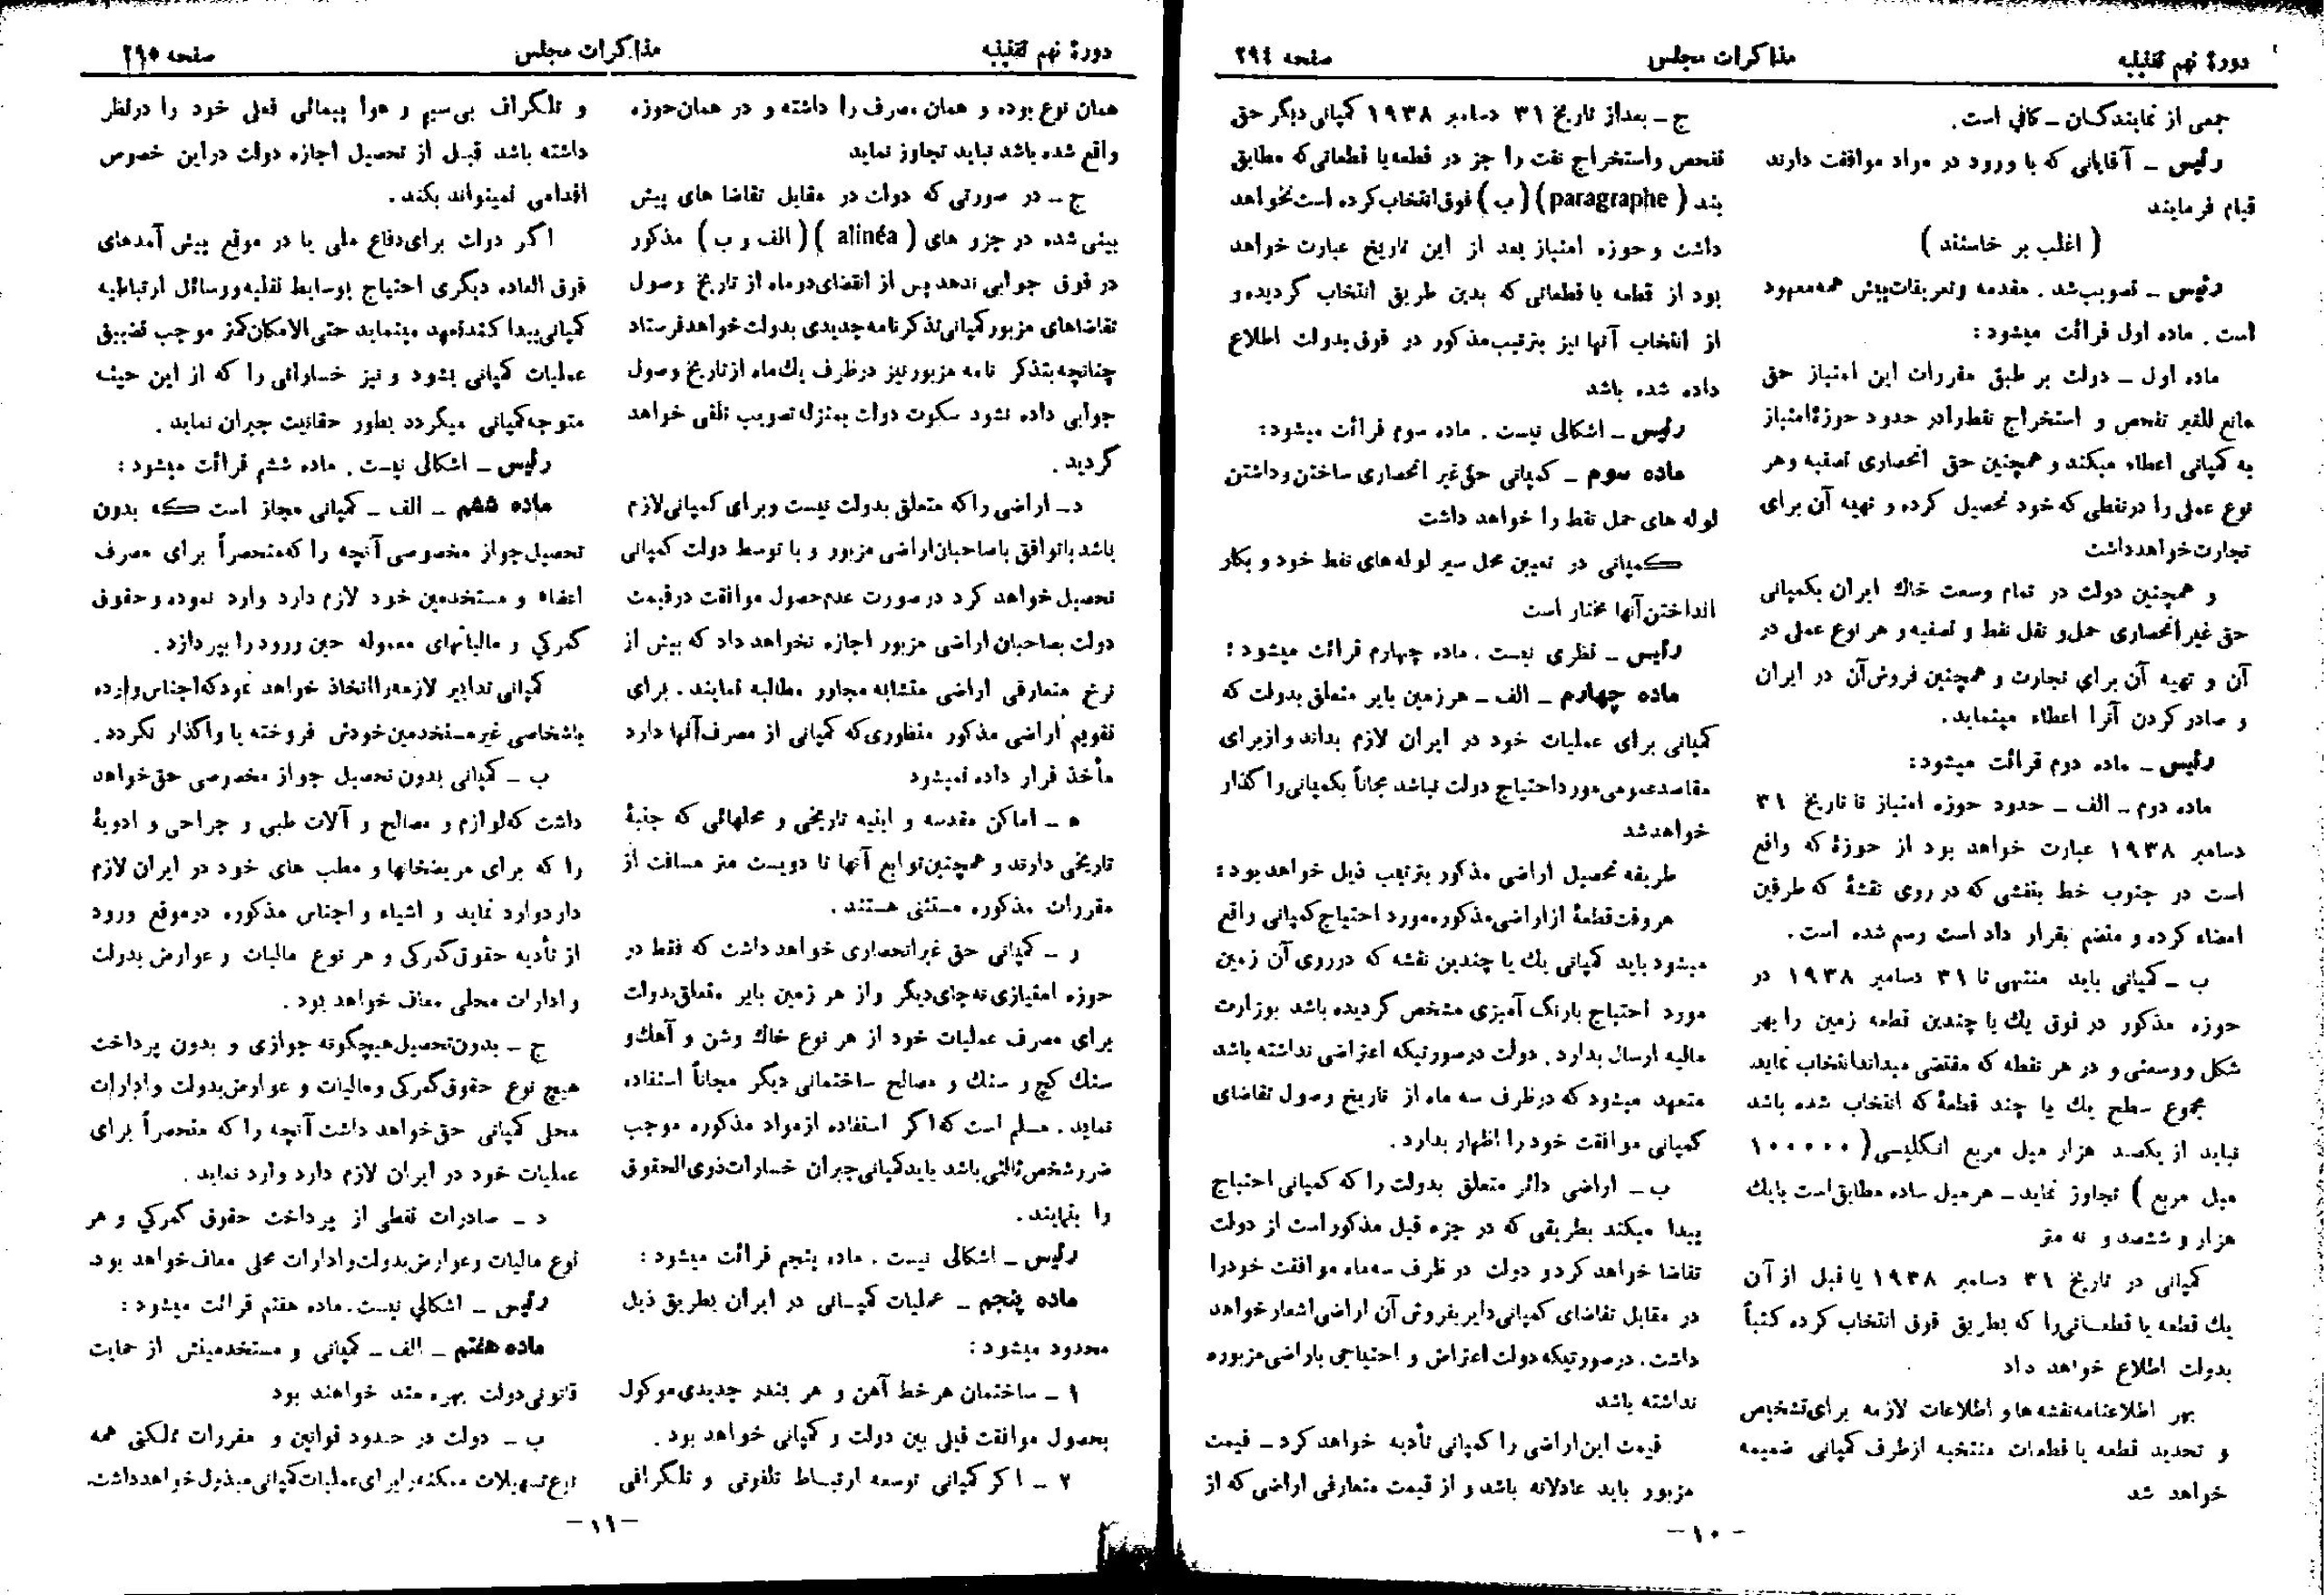 دورۀ نهم تقنینیه
مذاکرات مجلس
صفحه ۲۹٤
جمعی از نمایندگان ــ کافی است.
رئیس ــ آقایانی که با ورود در مواد موافقت دارند
قیام فرمایند
( اغلب بر خاستند )
رئیس ــ تصویب شد . مقدمه و تعریفات پیش همه معهود
است . ماده اول قرائت میشود :
ماده اول ــ دولت بر طبق مقررات این امتیاز حق
مانع للغیر تفحص و استخراج نفط را در حدود حوزۀ امتیاز
به کمپانی اعطاء میکند و همچنین حق انحصاری تصفیه و هر
نوع عملی را در نفطی که خود تحصیل کرده و تهیه آن برای
تجارت خواهد داشت
و همچنین دولت در تمام وسعت خاك ایران بکمپانی
حق غیر انحصاری حمل و نقل نفط و تصفیه و هر نوع عملی در
آن و تهیه آن برای تجارت و همچنین فروش آن در ایران
و صادر کردن آنرا اعطاء مینماید.
رئیس ــ ماده دوم قرائت میشود:
ماده دوم ــ الف ــ حدود حوزه امتیاز تا تاریخ ۳۱
دسامبر ۱۹۳۸ عبارت خواهد بود از حوزۀ که واقع
است در جنوب خط بنفشی که در روی نقشۀ که طرفین
امضاء کرده و منضم بقرار داد است رسم شده است .
ب ــ کمپانی باید منتهی تا ۳۱ دسامبر ۱۹۳۸ در
حوزه مذکور در فوق یك یا چندین قطعه زمین را بهر
شکل و وسعتی و در هر نقطه که مقتضی میداند انتخاب نماید
مجموع سطح یك یا چند قطعۀ که انتخاب شده باشد
نباید از یکصد هزار میل مربع انگلیسی ( ۱۰۰۰۰۰
میل مربع ) تجاوز نماید ــ هر میل ساده مطابق است با یك
هزار و ششصد و نه متر
کمپانی در تاریخ ۳۱ دسامبر ۱۹۳۸ یا قبل از آن
یك قطعه یا قطعــاتی را که بطریق فوق انتخاب کرده کتباً
بدولت اطلاع خواهد داد
بهر اطلاعنامه نقشه ها و اطلاعات لازمه برای تشخیص
و تحدید قطعه یا قطعات منتخبه از طرف کمپانی ضمیمه
خواهد شد
ج ــ بعد از تاریخ ۳۱ دسامبر ۱۹۳۸ کمپانی دیگر حق
تفحص و استخراج نفت را جز در قطعه یا قطعاتی که مطابق
بند ( paragraphe ) ( ب ) فوق انتخاب کرده است نخواهد
داشت و حوزه امتیاز بعد از این تاریخ عبارت خواهد
بود از قطعه یا قطعاتی که بدین طریق انتخاب گردیده و
از انتخاب آنها نیز بترتیب مذکور در فوق بدولت اطلاع
داده شده باشد
رئیس ــ اشکالی نیست . ماده سوم قرائت میشود:
ماده سوم ــ کمپانی حق غیر انحصاری ساختن و داشتن
لوله های حمل نفط را خواهد داشت
کمپانی در تعیین محل سیر لوله های نفط خود و بکار
انداختن آنها مختار است
رئیس ــ نظری نیست . ماده چهارم قرائت میشود :
ماده چهارم ــ الف ــ هر زمین بایر متعلق بدولت که
کمپانی برای عملیات خود در ایران لازم بداند و از برای
مقاصد عمومی مورد احتیاج دولت نباشد مجاناً بکمپانی واگذار
خواهد شد
طریقه تحصیل اراضی مذکور بترتیب ذیل خواهد بود :
هر وقت قطعۀ از اراضی مذکوره مورد احتیاج کمپانی واقع
میشود باید کمپانی یك یا چندین نقشه که در روی آن زمین
مورد احتیاج با رنگ آمیزی مشخص گردیده باشد بوزارت
مالیه ارسال بدارد . دولت در صورتیکه اعتراضی نداشته باشد
متعهد میشود که در ظرف سه ماه از تاریخ وصول تقاضای
کمپانی موافقت خود را اظهار بدارد .
ب ــ اراضی دائر متعلق بدولت را که کمپانی احتیاج
پیدا میکند بطریقی که در جزء قبل مذکور است از دولت
تقاضا خواهد کرد و دولت در ظرف سه ماه موافقت خود را
در مقابل تقاضای کمپانی دایر بفروش آن اراضی اشعار خواهد
داشت . در صورتیکه دولت اعتراض و احتیاجی باراضی مزبوره
نداشته باشد
قیمت این اراضی را کمپانی تأدیه خواهد کرد ــ قیمت
مزبور باید عادلانه باشد و از قیمت متعارفی اراضی که از
ــ ۱۰ ــ
دورۀ نهم تقنینیه
مذاکرات مجلس
صفحه ۲۹۵
همان نوع بوده و همان مصرف را داشته و در همان حوزه
واقع شده باشد نباید تجاوز نماید
ج ــ در صورتی که دولت در مقابل تقاضا های پیش
بینی شده در جزو های ( alinéa ) ( الف و ب ) مذکور
در فوق جوابی ندهد پس از انقضای دو ماه از تاریخ وصول
تقاضاهای مزبور کمپانی تذکر نامه جدیدی بدولت خواهد فرستاد
چنانچه بتذکر نامه مزبور نیز در ظرف یك ماه از تاریخ وصول
جوابی داده نشود سکوت دولت بمنزله تصویب تلقی خواهد
گردید .
د ــ اراضی را که متعلق بدولت نیست و برای کمپانی لازم
باشد با توافق با صاحبان اراضی مزبور و با توسط دولت کمپانی
تحصیل خواهد کرد در صورت عدم حصول موافقت در قیمت
دولت بصاحبان اراضی مزبور اجازه نخواهد داد که بیش از
نرخ متعارفی اراضی متشابه مجاور مطالبه نمایند . برای
تقویم اراضی مذکور منظوری که کمپانی از مصرف آنها دارد
مأخذ قرار داده نمیشود
ه ــ اماکن مقدسه و ابنیه تاریخی و محلهائی که جنبۀ
تاریخی دارند و همچنین توابع آنها تا دویست متر مسافت از
مقررات مذکوره مستثنی هستند .
و ــ کمپانی حق غیر انحصاری خواهد داشت که فقط در
حوزه امتیازی نه جای دیگر و از هر زمین بایر متعلق بدولت
برای مصرف عملیات خود از هر نوع خاك و شن و آهك و
سنك گچ و سنك و مصالح ساختمانی دیگر مجاناً استفاده
نماید . مسلم است که اگر استفاده از مواد مذکوره موجب
ضرر شخص ثالثی باشد باید کمپانی جبران خسارات ذوی الحقوق
را بنمایند .
رئیس ــ اشکالی نیست . ماده پنجم قرائت میشود :
ماده پنجم ــ عملیات کمپــانی در ایران بطریق ذیل
محدود میشود :
۱ ــ ساختمان هر خط آهن و هر بندر جدیدی موکول
بحصول موافقت قبلی بین دولت و کمپانی خواهد بود .
۲ ــ اگر کمپانی توسعه ارتبــاط تلفونی و تلگرافی
و تلگراف بی سیم و هوا پیمائی فعلی خود را در نظر
داشته باشد قبل از تحصیل اجازه دولت در این خصوص
اقدامی نمیتواند بکند .
اگر دولت برای دفاع ملی یا در موقع پیش آمدهای
فوق العاده دیگری احتیاج بوسایط نقلیه و وسائل ارتباطیه
کمپانی پیدا کند تعهد مینماید حتی الامکان کمتر موجب تضییق
عملیات کمپانی بشود و نیز خساراتی را که از این حیث
متوجه کمپانی میگردد بطور حقانیت جبران نماید .
رئیس ــ اشکالی نیست . ماده ششم قرائت میشود :
ماده ششم ــ الف ــ کمپانی مجاز است که بدون
تحصیل جواز مخصوصی آنچه را که منحصراً برای مصرف
اعضاء و مستخدمین خود لازم دارد وارد نموده و حقوق
گمرکی و مالیاتهای معموله حین ورود را بپردازد .
کمپانی تدابیر لازمه را اتخاذ خواهد نمود که اجناس وارده
باشخاصی غیر مستخدمین خودش فروخته یا واگذار نگردد .
ب ــ کمپانی بدون تحصیل جواز مخصوصی حق خواهد
داشت که لوازم و مصالح و آلات طبی و جراحی و ادویۀ
را که برای مریضخانها و مطب های خود در ایران لازم
دارد وارد نماید و اشیاء و اجناس مذکوره در موقع ورود
از تأدیه حقوق گمرکی و هر نوع مالیات و عوارض بدولت
و ادارات محلی معاف خواهد بود .
ج ــ بدون تحصیل هیچگونه جوازی و بدون پرداخت
هیچ نوع حقوق گمرکی و مالیات و عوارض بدولت و ادارات
محلی کمپانی حق خواهد داشت آنچه را که منحصراً برای
عملیات خود در ایران لازم دارد وارد نماید .
د ــ صادرات نفطی از پرداخت حقوق گمرکي و هر
نوع مالیات و عوارض بدولت و ادارات محلی معاف خواهد بود.
رئیس ــ اشکالي نیست . ماده هفتم قرائت میشود :
ماده هفتم ــ الف ــ کمپانی و مستخدمینش از حمایت
قانونی دولت بهره مند خواهند بود
ب ــ دولت در حدود قوانین و مقررات مملکتی همه
نوع تسهیلات ممکنه را برای عملیات کمپانی مبذول خواهد داشت.
ــ ۱۱ ــ